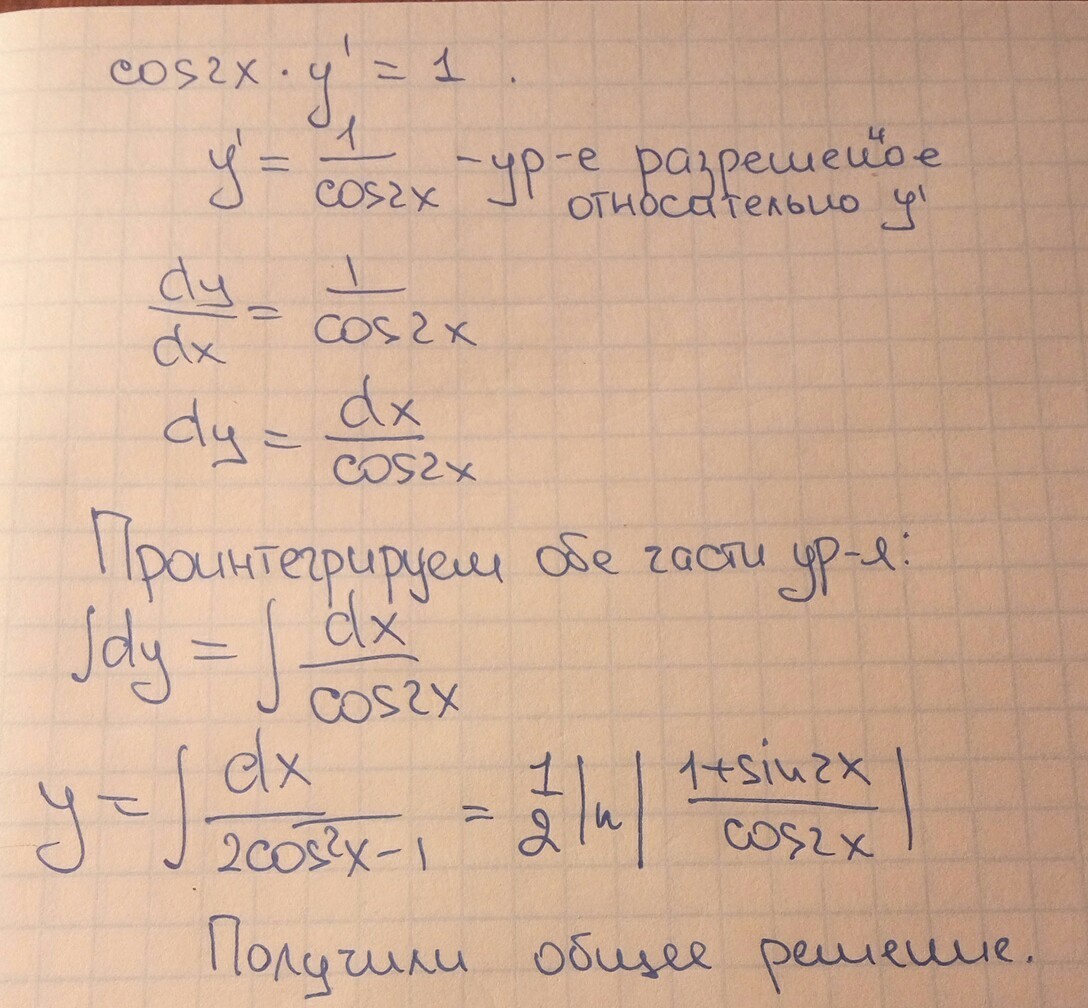 cos2x · y' = 1 .
y' = 1/cos2x - ур-е разрешенное
относательно y'
dy/dx = 1/cos2x
dy = dx/cos2x
Проинтегрируем обе части ур-я:
∫dy = ∫ dx/cos2x
y = ∫ dx/(2cos²x-1) = 1/2 ln |(1+sin2x)/cos2x|
Получили общее решение.